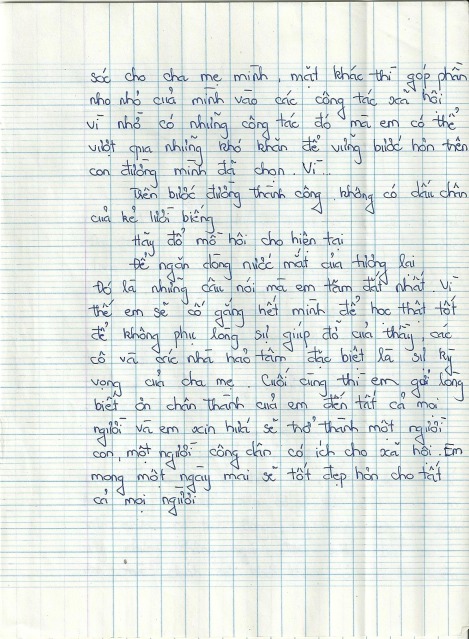 sóc cho cha mẹ mình, mặt khác thì góp phần
nho nhỏ của mình vào các công tác xã hội
vì nhờ có những công tác đó mà em có thể
vượt qua những khó khăn để vững bước hơn trên
con đường mình đã chọn. Vì...
Trên bước đường thành công không có dấu chân
của kẻ lười biếng
Hãy đổ mồ hôi cho hiện tại
Để ngăn dòng nước mắt của tương lai
Đó là những câu nói mà em tâm đắt nhất. Vì
thế em sẽ cố gắng hết mình để học thật tốt
để không phụ lòng sự giúp đỡ của thầy, các
cô và các nhà hảo tâm đặc biệt là sự kỳ
vọng của cha mẹ. Cuối cùng thì em gởi lòng
biết ơn chân thành của em đến tất cả mọi
người và em xin hứa sẽ trở thành một người
con, một người công dân có ích cho xã hội. Em
mong một ngày mai sẽ tốt đẹp hơn cho tất
cả mọi người